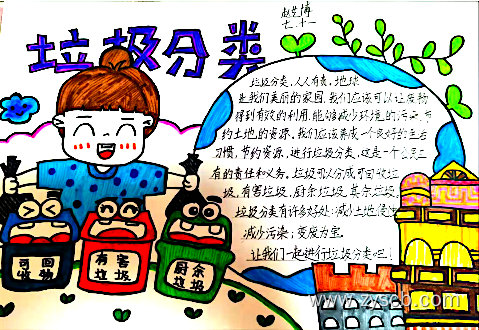 垃圾分类
赵艺博
七、十一
垃圾分类,人人有责,地球
是我们美丽的家园,我们应该可以让废物
得到有效的利用,能够减少环境的污染,节
约土地的资源,我们应该养成一个良好的生活
习惯,节约资源,进行垃圾分类,这是一个
有的责任和义务。垃圾可以分成可回收垃
圾,有害垃圾,厨余垃圾,其余垃圾。
垃圾分类有许多好处:减少土地侵蚀
减少污染;变废为宝。
让我们一起进行垃圾分类吧!
可回
收物
有害
垃圾
厨余
垃圾
www.zyscb.com